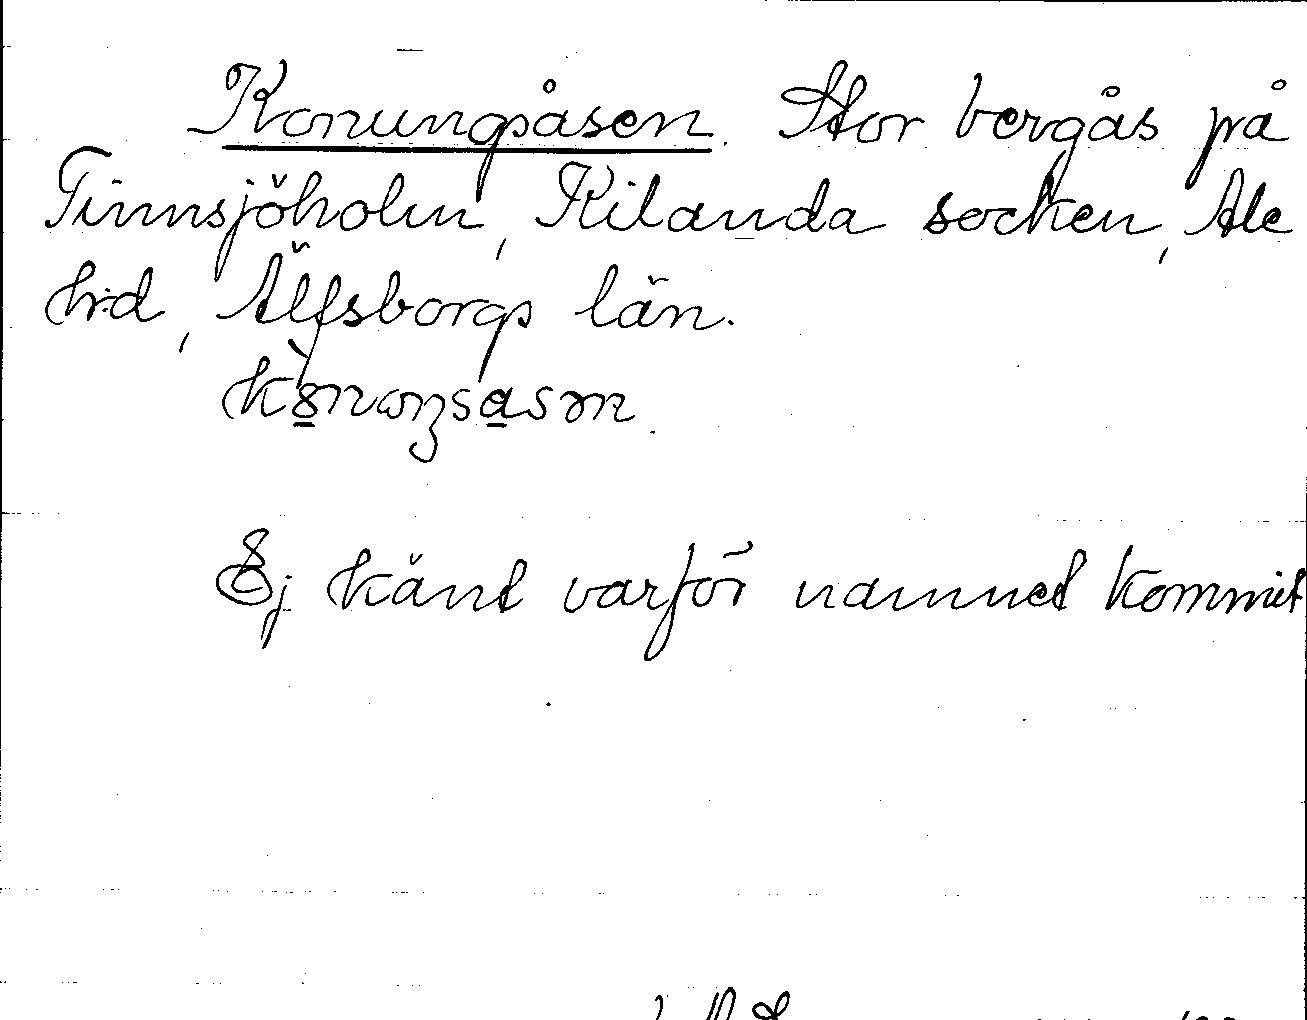 Konungsåsen. Stor bergås på
Tinnsjöholm, Kilanda socken, Ale
hrd, Älfsborgs län.
Ej känt varför namnet kommit